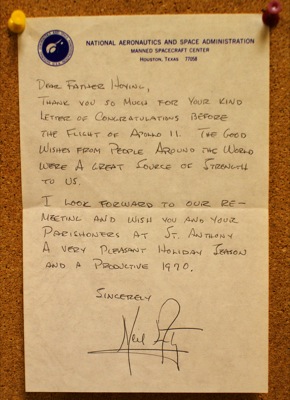 NATIONAL AERONAUTICS AND SPACE ADMINISTRATION
MANNED SPACECRAFT CENTER
HOUSTON, TEXAS 77058
DEAR FATHER HOYING,
THANK YOU SO MUCH FOR YOUR KIND
LETTER OF CONGRATULATIONS BEFORE
THE FLIGHT OF APOLLO 11. THE GOOD
WISHES FROM PEOPLE AROUND THE WORLD
WERE A GREAT SOURCE OF STRENGTH
TO US.
I LOOK FORWARD TO OUR RE-
MEETING AND WISH YOU AND YOUR
PARISHONERS AT ST. ANTHONY
A VERY PLEASANT HOLIDAY SEASON
AND A PRODUCTIVE 1970.
SINCERELY
Neil